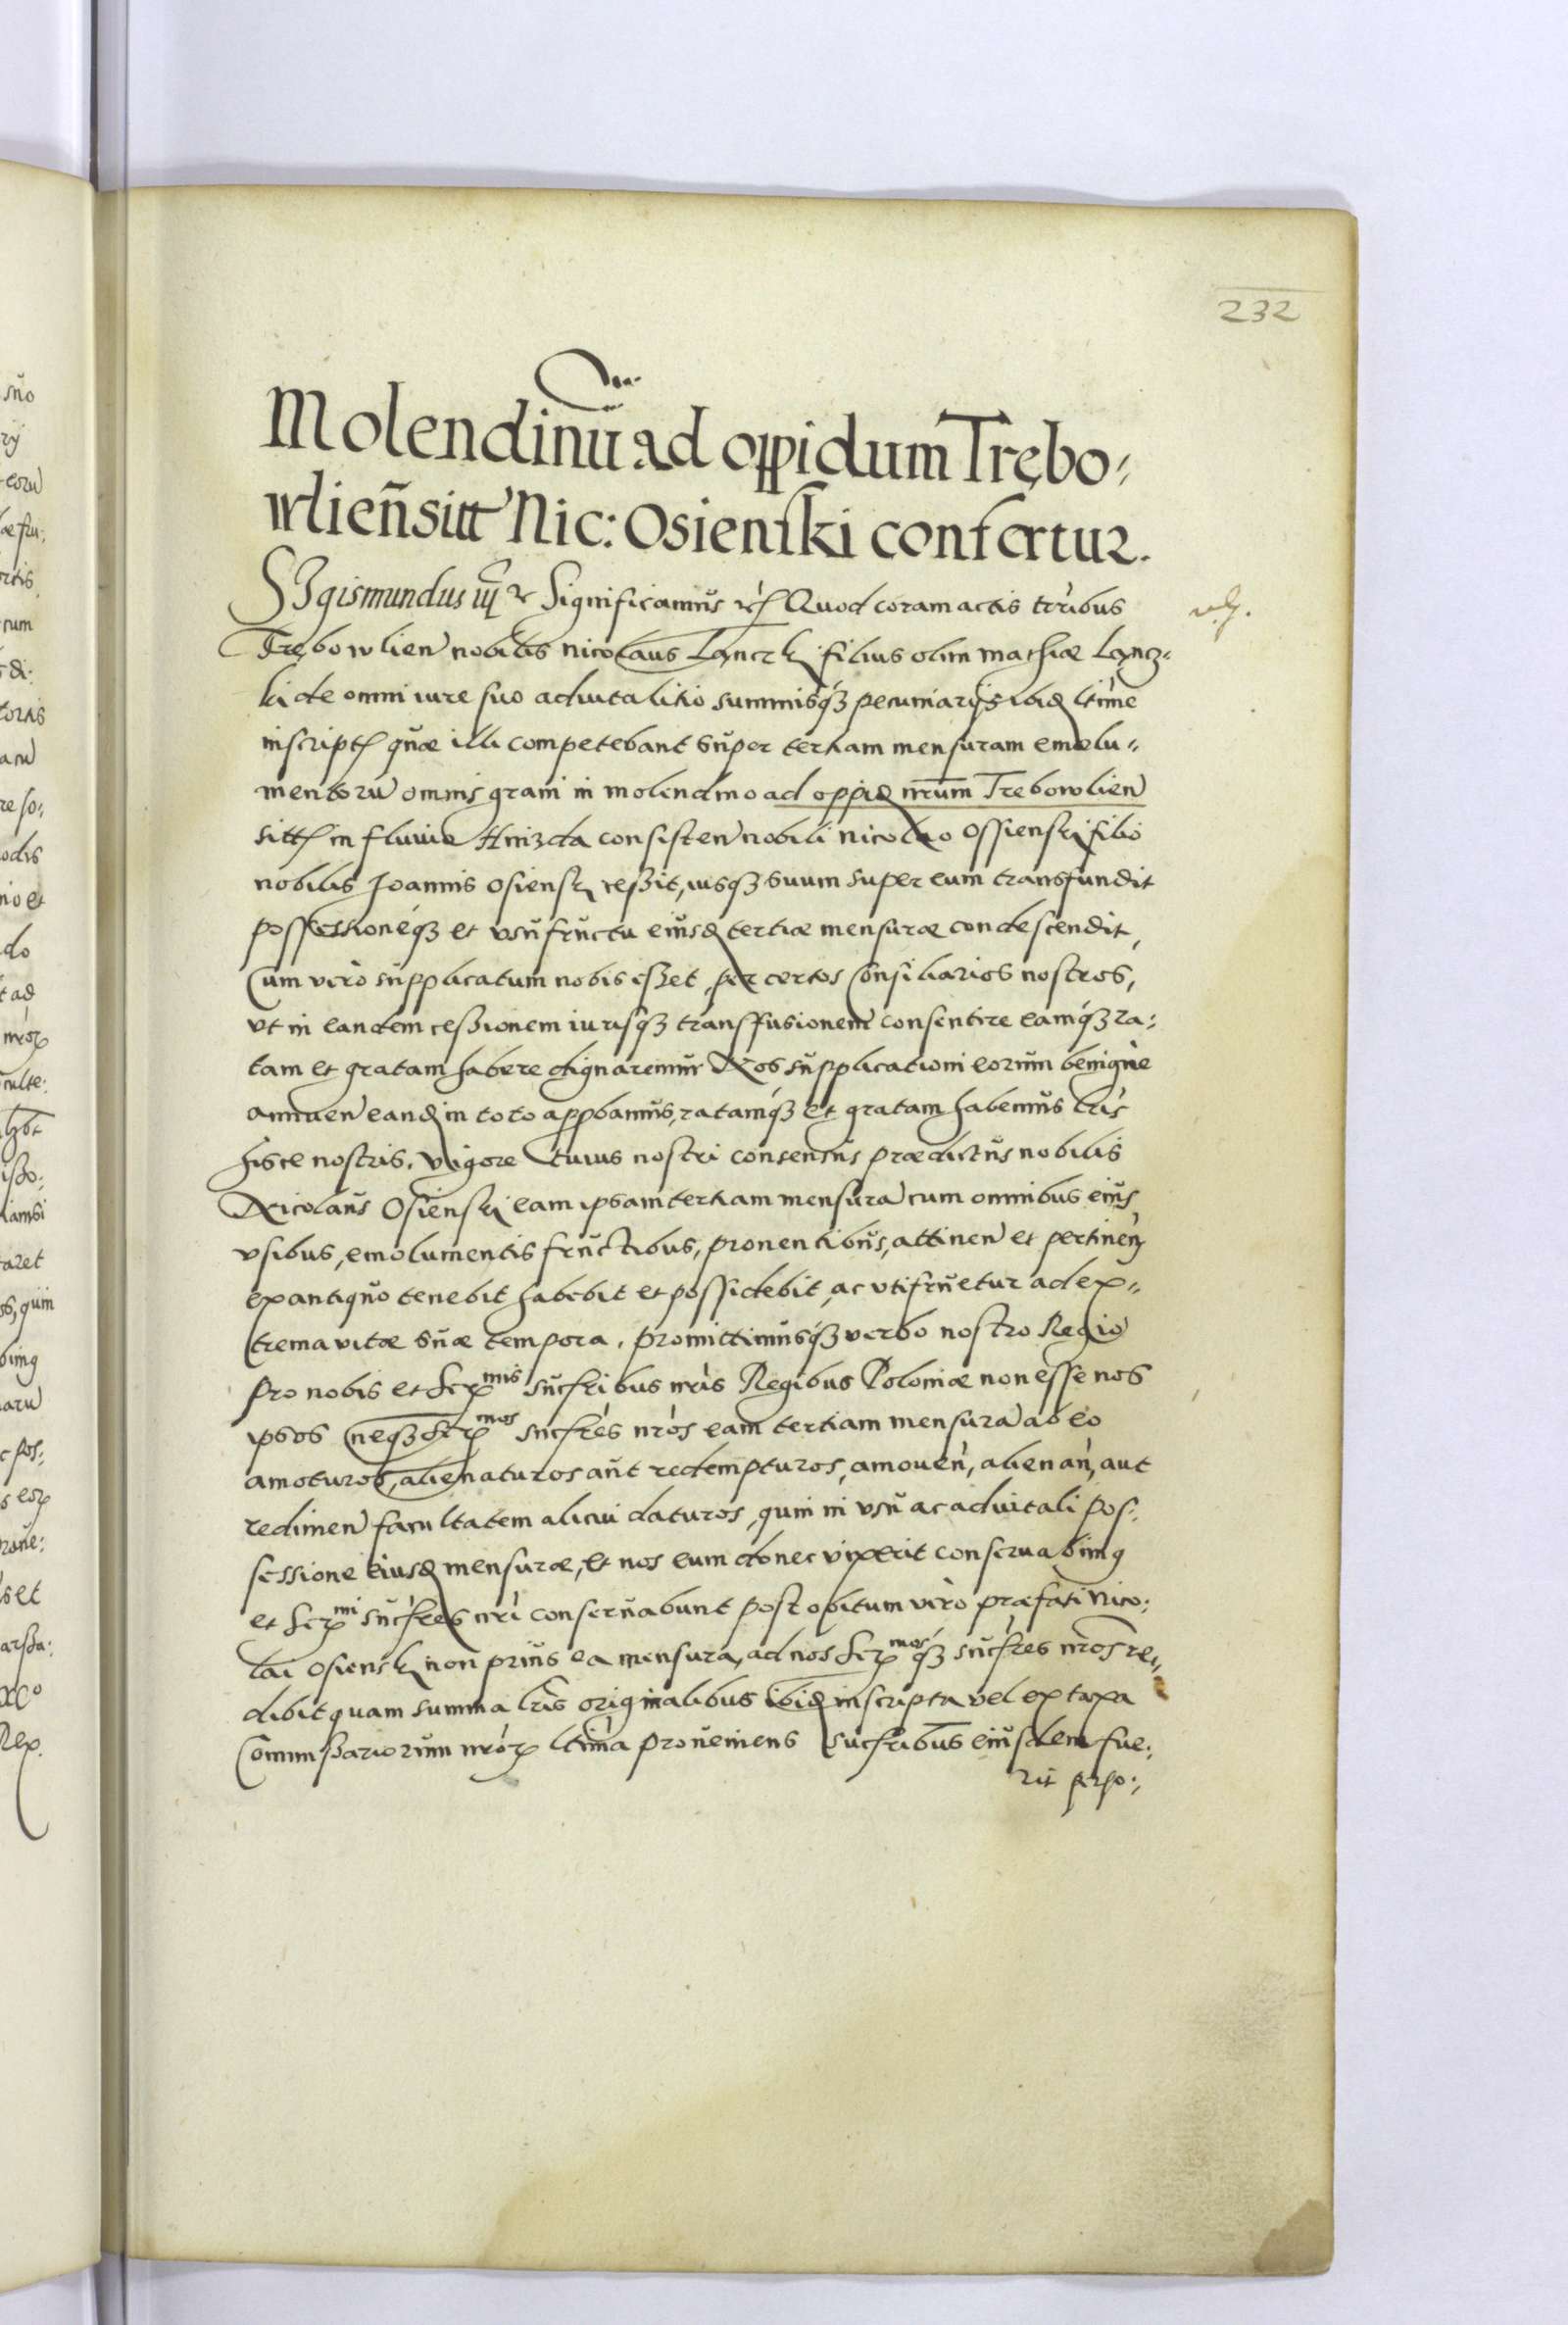 232
Molendinū ad oppidum Trębo⸗
wlien̄ sitt Nic: Osienski confertur.
SIgismundus iij etc Significamus etc Quod coram actis tr̄ribus
Trębowlien nobilis Nicolaus Lęnczki filius olim Mathiæ Lęncz⸗
ki de omni iure suo aduitalitio summisq́ȝ pecuniarijs ibid̄ ltime
inscript̄ quæ illi competebant super tertiam mensuram emolu⸗
mentorū omnis grani in molendino ad oppid̄ nr̄um Trebowlien
sitt̄ in fluuio Hnizda consisten nobili Nicolao Ossienski filio
nobilis Joannis Osienski cessit, iusqȝ suum super eum transfundit
possessioneq́ȝ et vsufructu eiusd̄ tertiæ mensuræ condescendit,
Cum verò supplicatum nobis esset, per certos Consiliarios nostros,
vt in eandem cessionem iurisqȝ transffusionem consentire eamq́ȝ ra⸗
tam et gratam habere dignaremur Nos supplicationi eorum benignè
annuen eand̄ in toto approbamus, ratamq́ȝ et gratam habemus lr̄is
hisce nostris. Vigore cuius nostri consensus prædictus nobilis
Nicolaus Osienski eam ipsam tertiam mensurā cum omnibus eius
vsibus, emolumentis fructibus, prouentibus, attinen et pertinen
ex antiquo tenebit habebit et possidebit, ac vtifruetur ad ex⸗
trema vitæ suæ tempora. promittimusq́ȝ verbo nostro Regio
pro nobis et Ser^mis succr̄ibus nr̄is Regibus Poloniæ non esse nos
ipsos neqȝ Ser^mos succr̄es nr̄os eam tertiam mensurā ab eo
amoturos, alienaturos aut redempturos, amouen, alienan, aut
redimen facultatem alicui daturos, quin in vsu ac aduitali pos⸗
sessione eiusd̄ mensuræ, et nos eum donec vixerit conseruabimꝰ
et Ser^mi succr̄es nr̄i conseruabunt post obitum verò præfati Nico⸗
lai Osienski non prius ea mensura, ad nos Ser^mosq́ȝ succr̄es nr̄os re⸗
dibit quam summa lr̄is originalibus ibid̄ inscripta vel ex taxa
Commissariorum nr̄oꝝ ltima proueniens succr̄ibus eiusdem fue⸗
rit perso⸗